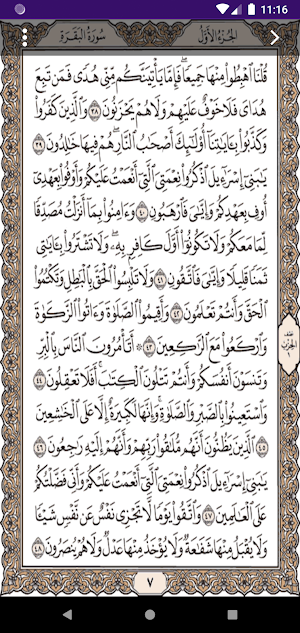 11:16
الجزء الأول
سورة البقرة
قُلْنَا ٱهْبِطُوا۟ مِنْهَا جَمِيعًا ۖ فَإِمَّا يَأْتِيَنَّكُم مِّنِّى هُدًى فَمَن تَبِعَ
هُدَاىَ فَلَا خَوْفٌ عَلَيْهِمْ وَلَا هُمْ يَحْزَنُونَ ٣٨ وَٱلَّذِينَ كَفَرُوا۟
وَكَذَّبُوا۟ بِـَٔايَـٰتِنَآ أُو۟لَـٰٓئِكَ أَصْحَـٰبُ ٱلنَّارِ ۖ هُمْ فِيهَا خَـٰلِدُونَ ٣٩
يَـٰبَنِىٓ إِسْرَٰٓءِيلَ ٱذْكُرُوا۟ نِعْمَتِىَ ٱلَّتِىٓ أَنْعَمْتُ عَلَيْكُمْ وَأَوْفُوا۟ بِعَهْدِىٓ
أُوفِ بِعَهْدِكُمْ وَإِيَّـٰىَ فَٱرْهَبُونِ ٤٠ وَءَامِنُوا۟ بِمَآ أَنزَلْتُ مُصَدِّقًا
لِّمَا مَعَكُمْ وَلَا تَكُونُوٓا۟ أَوَّلَ كَافِرٍۭ بِهِۦ ۖ وَلَا تَشْتَرُوا۟ بِـَٔايَـٰتِى
ثَمَنًا قَلِيلًا وَإِيَّـٰىَ فَٱتَّقُونِ ٤١ وَلَا تَلْبِسُوا۟ ٱلْحَقَّ بِٱلْبَـٰطِلِ وَتَكْتُمُوا۟
ٱلْحَقَّ وَأَنتُمْ تَعْلَمُونَ ٤٢ وَأَقِيمُوا۟ ٱلصَّلَوٰةَ وَءَاتُوا۟ ٱلزَّكَوٰةَ
وَٱرْكَعُوا۟ مَعَ ٱلرَّٰكِعِينَ ٤٣ ۞ أَتَأْمُرُونَ ٱلنَّاسَ بِٱلْبِرِّ
وَتَنسَوْنَ أَنفُسَكُمْ وَأَنتُمْ تَتْلُونَ ٱلْكِتَـٰبَ ۚ أَفَلَا تَعْقِلُونَ ٤٤
وَٱسْتَعِينُوا۟ بِٱلصَّبْرِ وَٱلصَّلَوٰةِ ۚ وَإِنَّهَا لَكَبِيرَةٌ إِلَّا عَلَى ٱلْخَـٰشِعِينَ
٤٥ ٱلَّذِينَ يَظُنُّونَ أَنَّهُم مُّلَـٰقُوا۟ رَبِّهِمْ وَأَنَّهُمْ إِلَيْهِ رَٰجِعُونَ ٤٦
يَـٰبَنِىٓ إِسْرَٰٓءِيلَ ٱذْكُرُوا۟ نِعْمَتِىَ ٱلَّتِىٓ أَنْعَمْتُ عَلَيْكُمْ وَأَنِّى فَضَّلْتُكُمْ
عَلَى ٱلْعَـٰلَمِينَ ٤٧ وَٱتَّقُوا۟ يَوْمًا لَّا تَجْزِى نَفْسٌ عَن نَّفْسٍ شَيْـًٔا
وَلَا يُقْبَلُ مِنْهَا شَفَـٰعَةٌ وَلَا يُؤْخَذُ مِنْهَا عَدْلٌ وَلَا هُمْ يُنصَرُونَ ٤٨
الحزب
٧